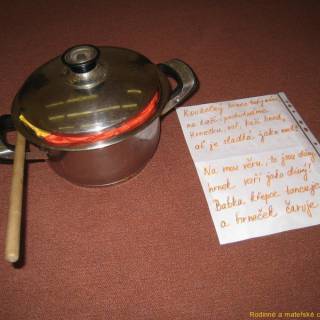 Kouzelný hrnec tady
na kaši
Hrnečku, vař, kaši
ať je sladká jako med
Na mou věru, to jsou divy
hrnek vaří jako divý!
Babka křepce tancuje
a hrneček čaruje
Rodinné a mateřské c